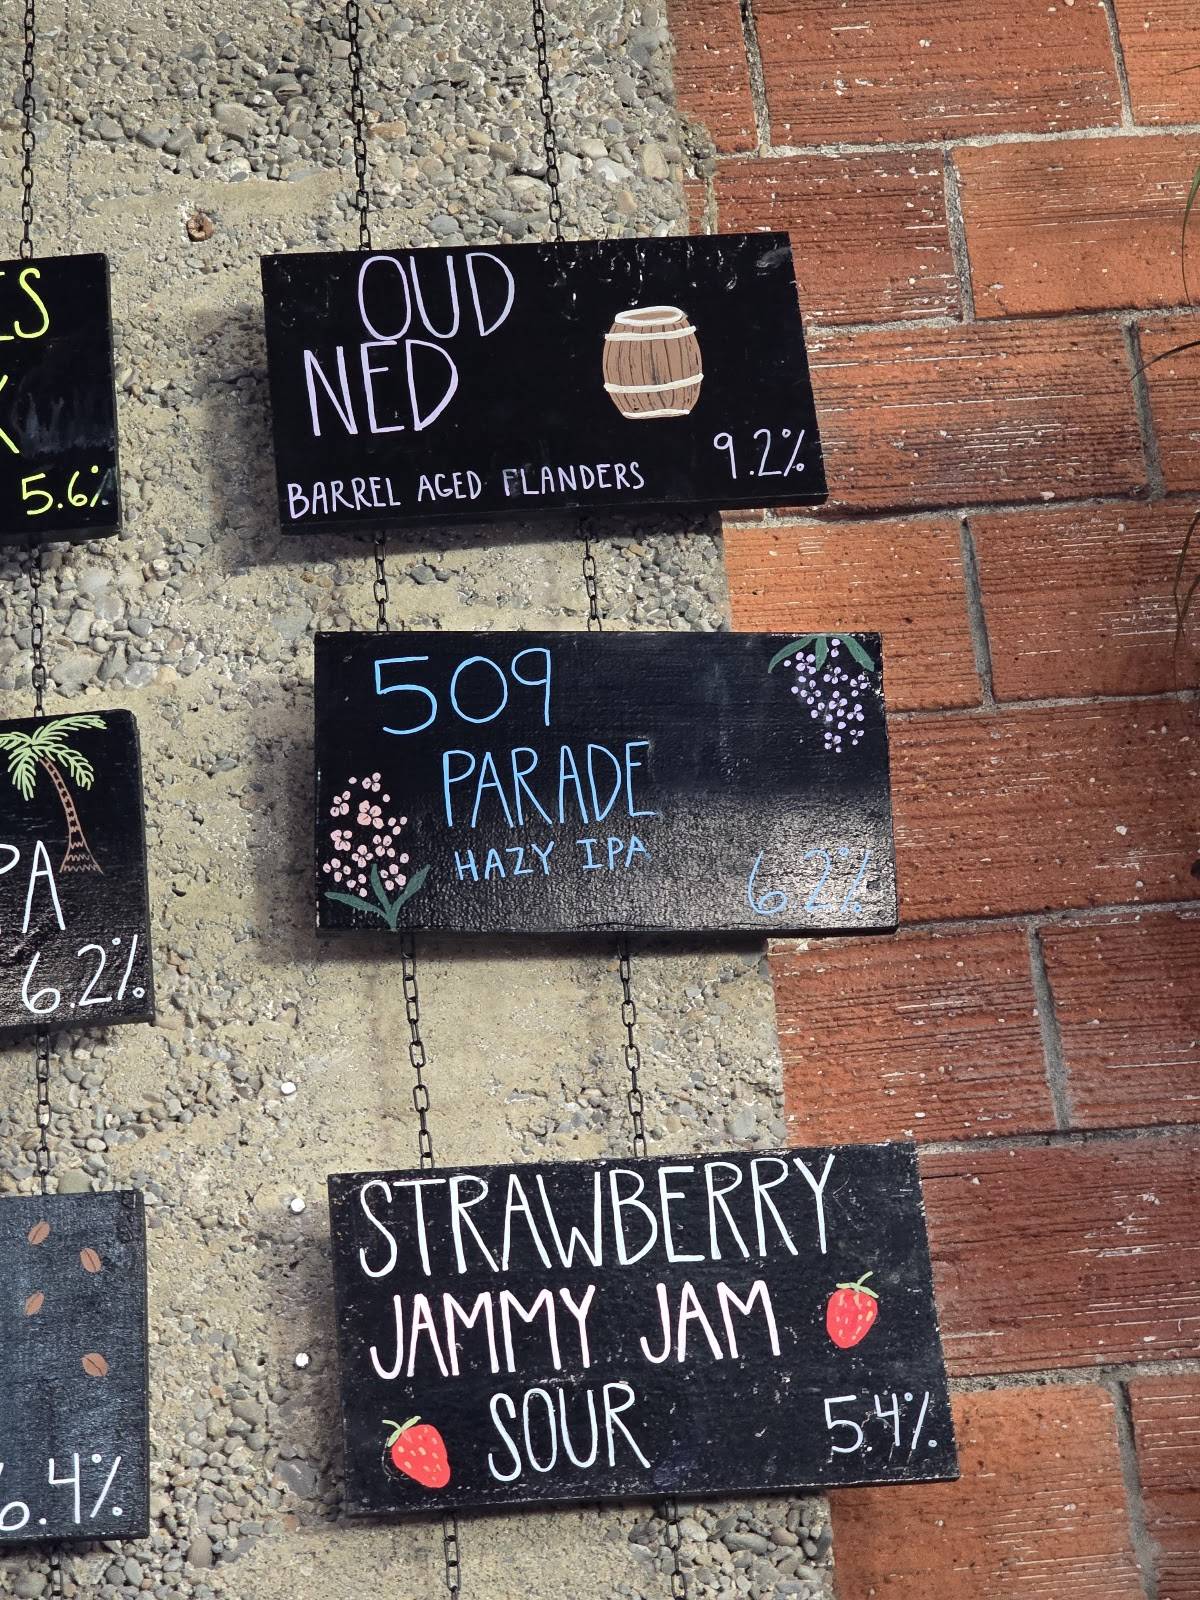 5.6%
PA
6.2%
6.4%
OUD
NED
BARREL AGED FLANDERS
9.2%
509
PARADE
HAZY IPA
6.2%
STRAWBERRY
JAMMY JAM
SOUR
5.4%